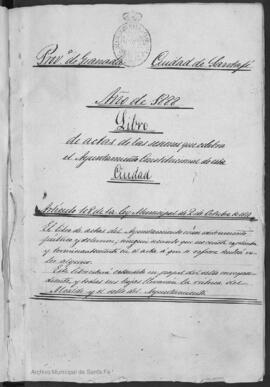 Prov.ª de Granada Ciudad de Santafé
Año de 1888
Libro
de actas de las sesiones que celebra
el Ayuntamiento Constitucional de esta
Ciudad
Artículo 108 de la ley Municipal de 2 de Octubre de 1877
El libro de actas del Ayuntamiento es un instrumento
público y solemne, ningún acuerdo que no conste
y terminantemente en el acta á que se refiera tendrá va-
lor alguno.
Este libro estará en papel del sello
y todas sus hojas llevarán la rúbrica del
Alcalde y el sello del Ayuntamiento.
Archivo Municipal de Santa Fe